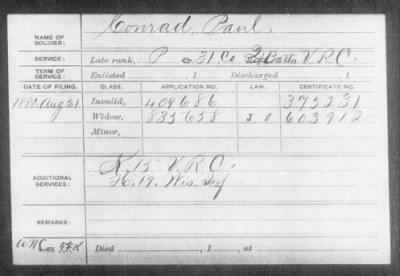 NAME OF SOLDIER: Conrad, Paul.
SERVICE: Late rank, P 31, Co 2 Batt V.R.C.
TERM OF SERVICE: Enlisted , 1 Discharged , 1
DATE OF FILING. CLASS. APPLICATION NO. LAW. CERTIFICATE NO.
1880 Aug 21 Invalid, 409686 373231
Widow, 835658 603912
Minor,
ADDITIONAL SERVICES: K. 15 V.R.C.
H. 19. Wis. Inf
REMARKS:
Died , 1 , at